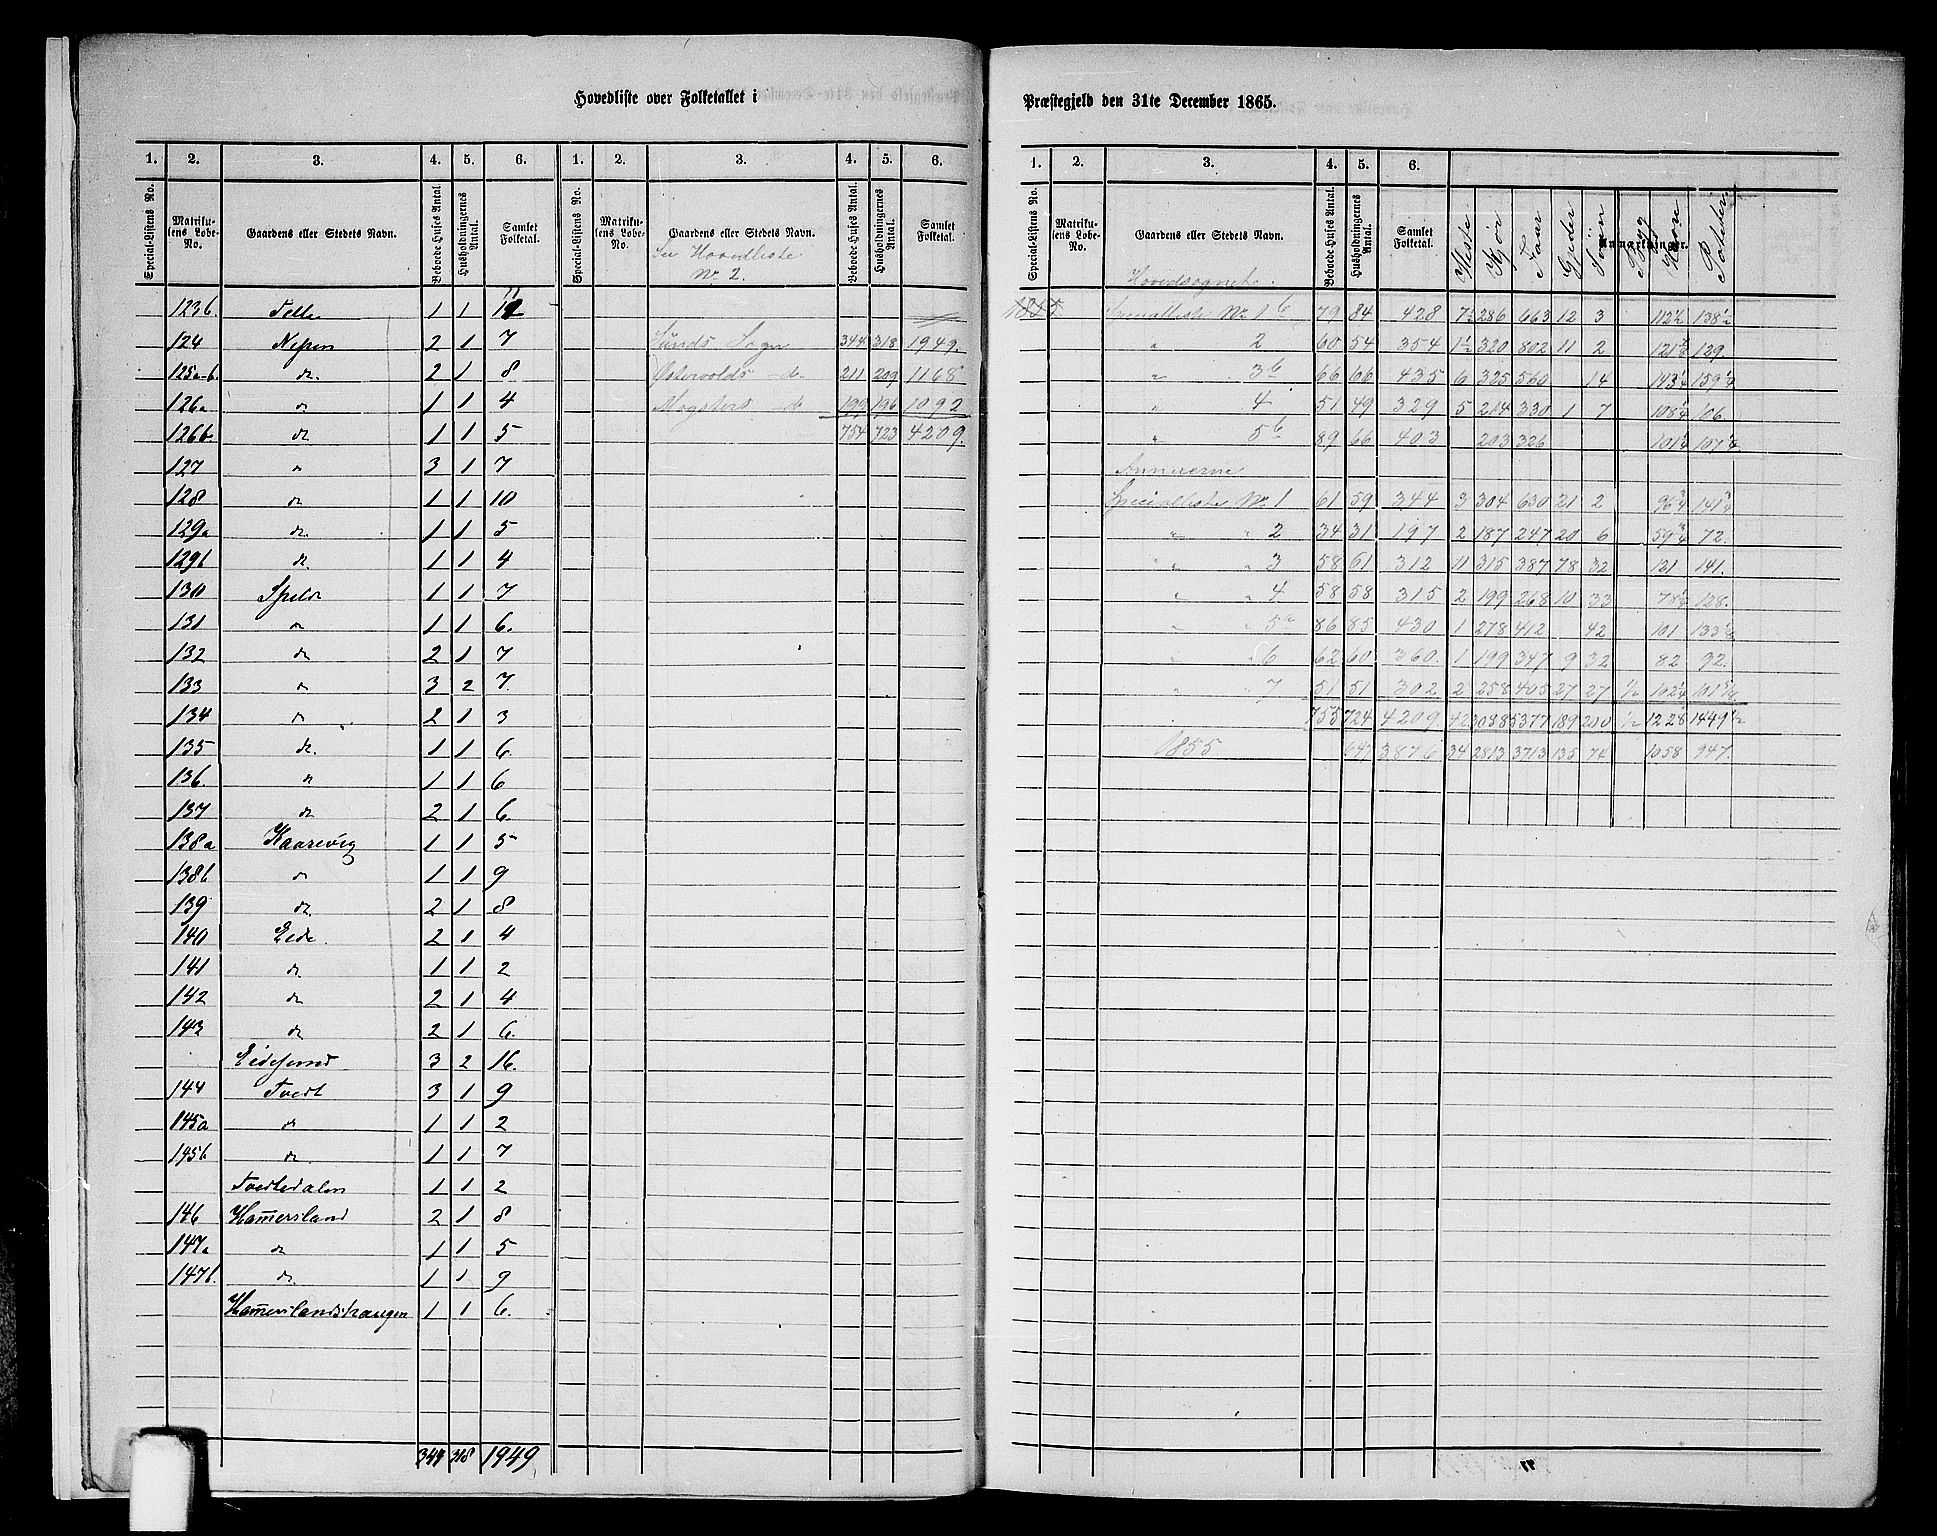 Hovedliste over Folketallet i
1. 2. 3. 4. 5. 6. 1. 2. 3. 4. 5. 6.
Special-Listens No. Matrikulens Løbe-No. Gaardens eller Stedets Navn. Beboede Huses Antal. Husholdningernes Antal. Samlet Folketal. Special-Listens No. Matrikulens Løbe-No. Gaardens eller Stedets Navn. Beboede Huses Antal. Husholdningernes Antal. Samlet Folketal.
Se Hovedliste
No 2.
123b Telle 1 1
124 Nepen 2 1 7 Sunds Sogn 344 318 1949.
125a-b. do. 2 1 8 Østervolds do 211 209 1168
126a do 1 1 4 Mogsters do 199 196 1092
126b do 1 1 5 754 723 4209.
127 do 3 1 7
128 do 1 1 10
129a do. 1 1 5
129b do. 1 1 4
130 Spilde 1 1 7
131 do 1 1 6.
132 do 2 1 7
133 do 3 2 7.
134 do 2 1 3
135 do. 1 1 6
136. do 1 1 6
137 do 2 1 6.
138a Kaarevig 1 1 5
138b do 1 1 9
139 do. 2 1 8
140 Eide. 2 1 4
141 do. 1 1 2
142 do 2 1 4
143 do 2 1 6.
Eidesund 3 2 16.
144 Tvedt 3 1 9
145a do 1 1 2
145b do. 1 1 7
Tvedtedalen 1 1 2
146 Hamersland 2 1 8
147a do 1 1 5
147b. do. 1 1 9
Hamerslandshaugen 1 1 6.
344 318 1949
Præstegjeld den 31te December 1865.
1. 2. 3. 4. 5. 6.
Special-Listens No. Matrikulens Løbe-No. Gaardens eller Stedets Navn. Beboede Huses Antal. Husholdningernes Antal. Samlet Folketal. Anmærkninger.
Heste Kjør Faar Gjeder Sviin Byg Havre Poteter
Hovedsognet.
1865 Specialliste No 1 b 79 84 428 7½ 286 663 12 3 112½ 138½
" 2 60 54 354 1½ 320 802 11 2 129.
" 3 b 66 66 435 6 325 560 14 143¼ 159¼
" 4 51 49 329 5 214 330 1 7 108¼ 106
" 5 b 89 66 403 203 326 101½
Annexerne
Specialliste No 1 61 59 344 3 304 630 21 2 96¾ 141¾
" " 2 34 31 197 2 187 247 20 6 59¾ 72.
" " 3 58 61 312 11 315 387 78 32 131 141.
" " 4 58 58 315 2 199 268 10 33 128.
" " 5 a 86 85 430 1 278 412 42 101
" " 6 62 60 360. 1 199 347 9 32 82 92.
" " 7 51 51 302 2 258 405 27 27 ½ 102¼
755 724 4209. 42 3088 5377 189 200 ½ 1228 1449½
1855 647 3876 34 2813 3713 135 74 1058 947.